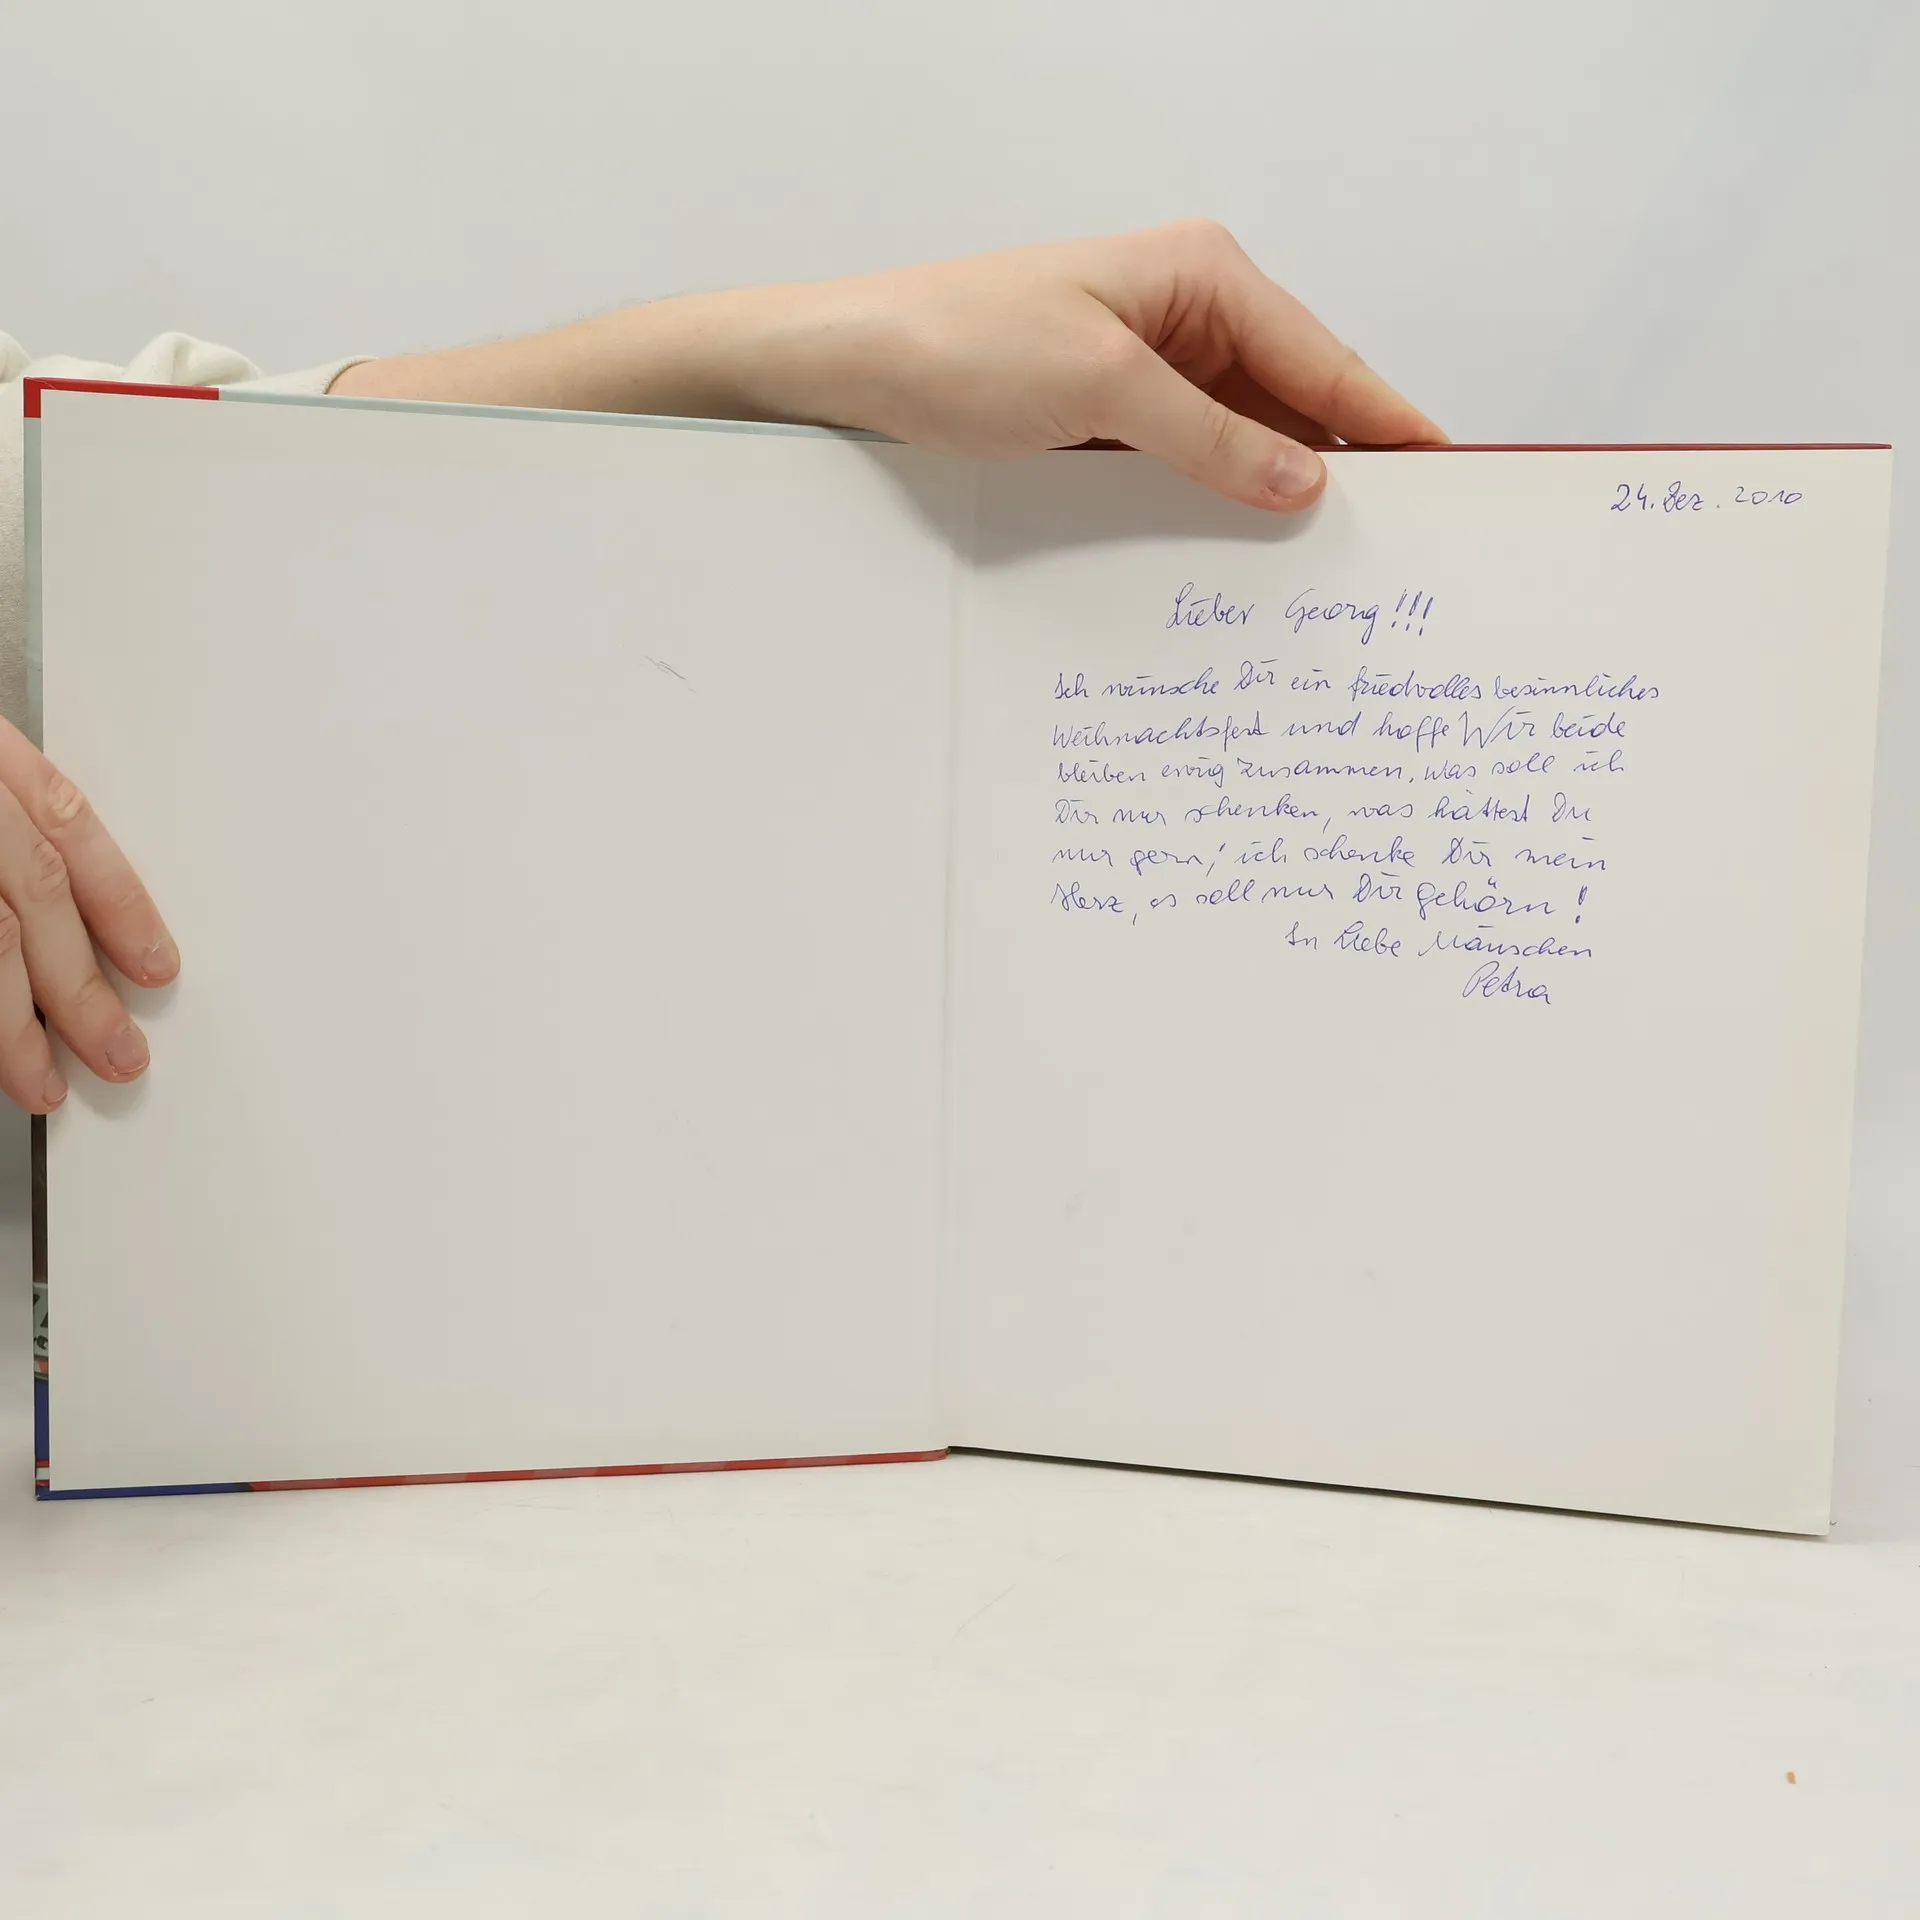 24. Dez. 2010
Lieber Georg!!!
Ich wünsche Dir ein friedvolles besinnliches
Weihnachtsfest und hoffe Wir beide
bleiben ewig zusammen, was soll ich
Dir nur schenken, was hättest Du
nur gern, ich schenke Dir mein
Herz, es soll nur Dir gehörn!
In Liebe Mäuschen
Petra